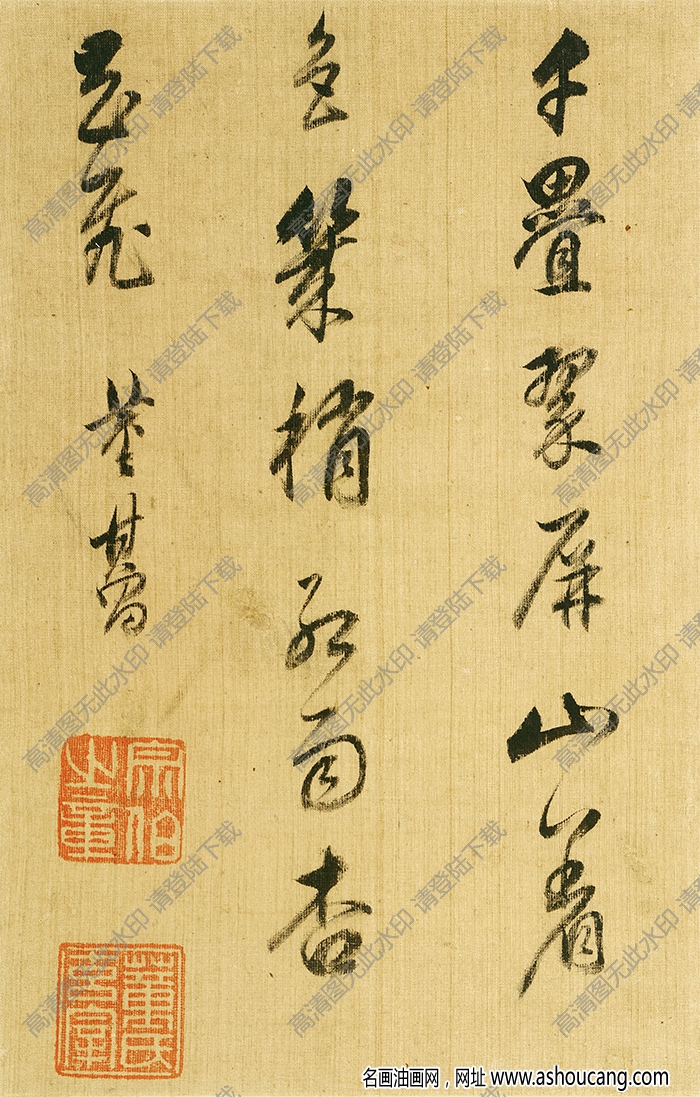 千疊翠屏山着
色稍紅雨杏
花飛
董其昌
宗伯之章
董氏玄宰
高清图无此水印 请登陆下载
名画油画网，网址 www.ashoucang.com